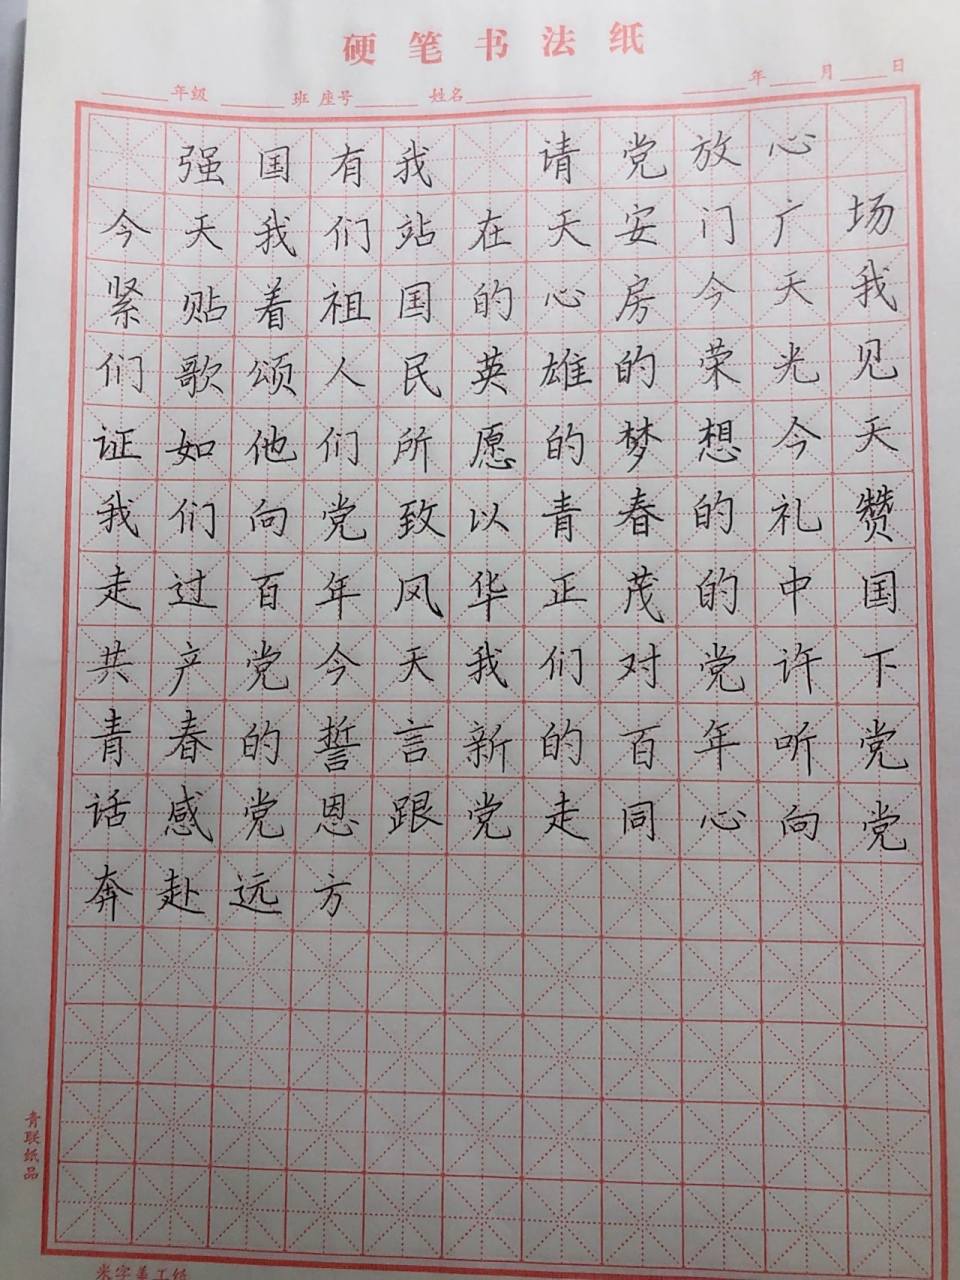 硬笔书法纸
年级 班 座号 姓名 年 月 日
强国有我 请党放心
今天我们站在天安门广场
紧贴着祖国的心房今天我
们歌颂人民英雄的荣光见
证如他们所愿的梦想今天
我们向党致以青春的礼赞
走过百年风华正茂的中国
共产党今天我们对党许下
青春的誓言新的百年听党
话感党恩跟党走同心向党
奔赴远方
青联纸品